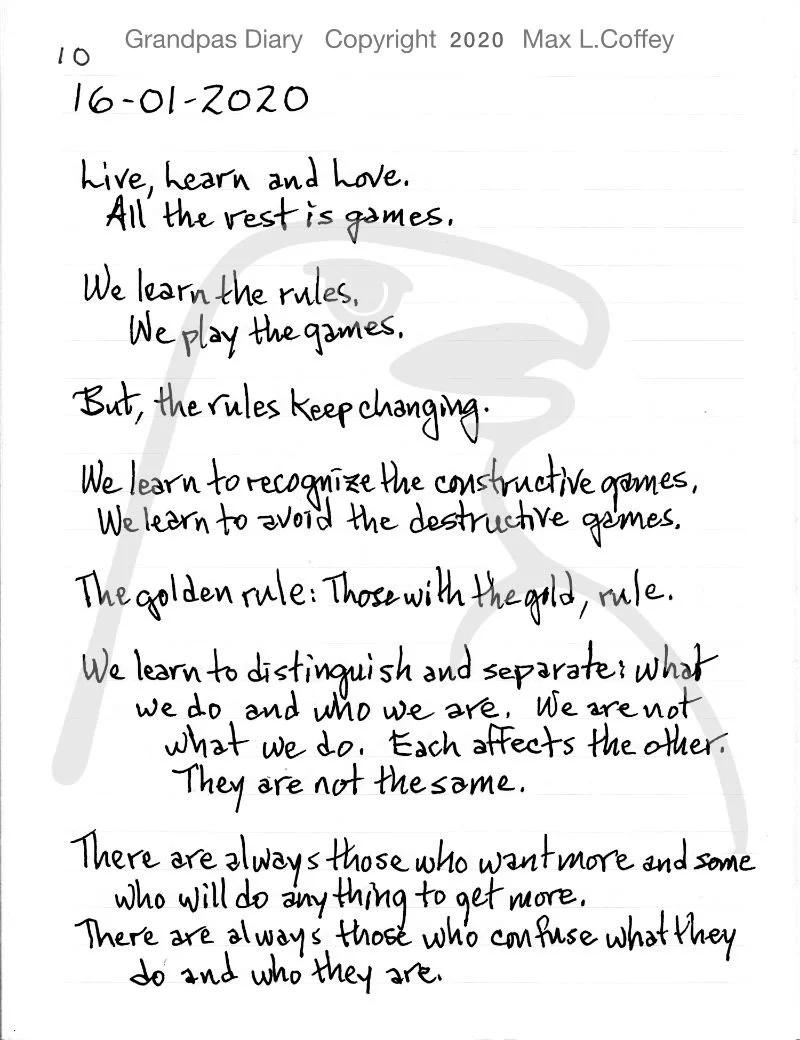 Grandpas Diary Copyright 2020 Max L.Coffey
10
16-01-2020
Live, Learn and Love.
All the rest is games.
We learn the rules,
We play the games.
But, the rules keep changing.
We learn to recognize the constructive games,
We learn to avoid the destructive games.
The golden rule: Those with the gold, rule.
We learn to distinguish and separate: what
we do and who we are. We are not
what we do. Each affects the other.
They are not the same.
There are always those who want more and some
who will do anything to get more.
There are always those who confuse what they
do and who they are.